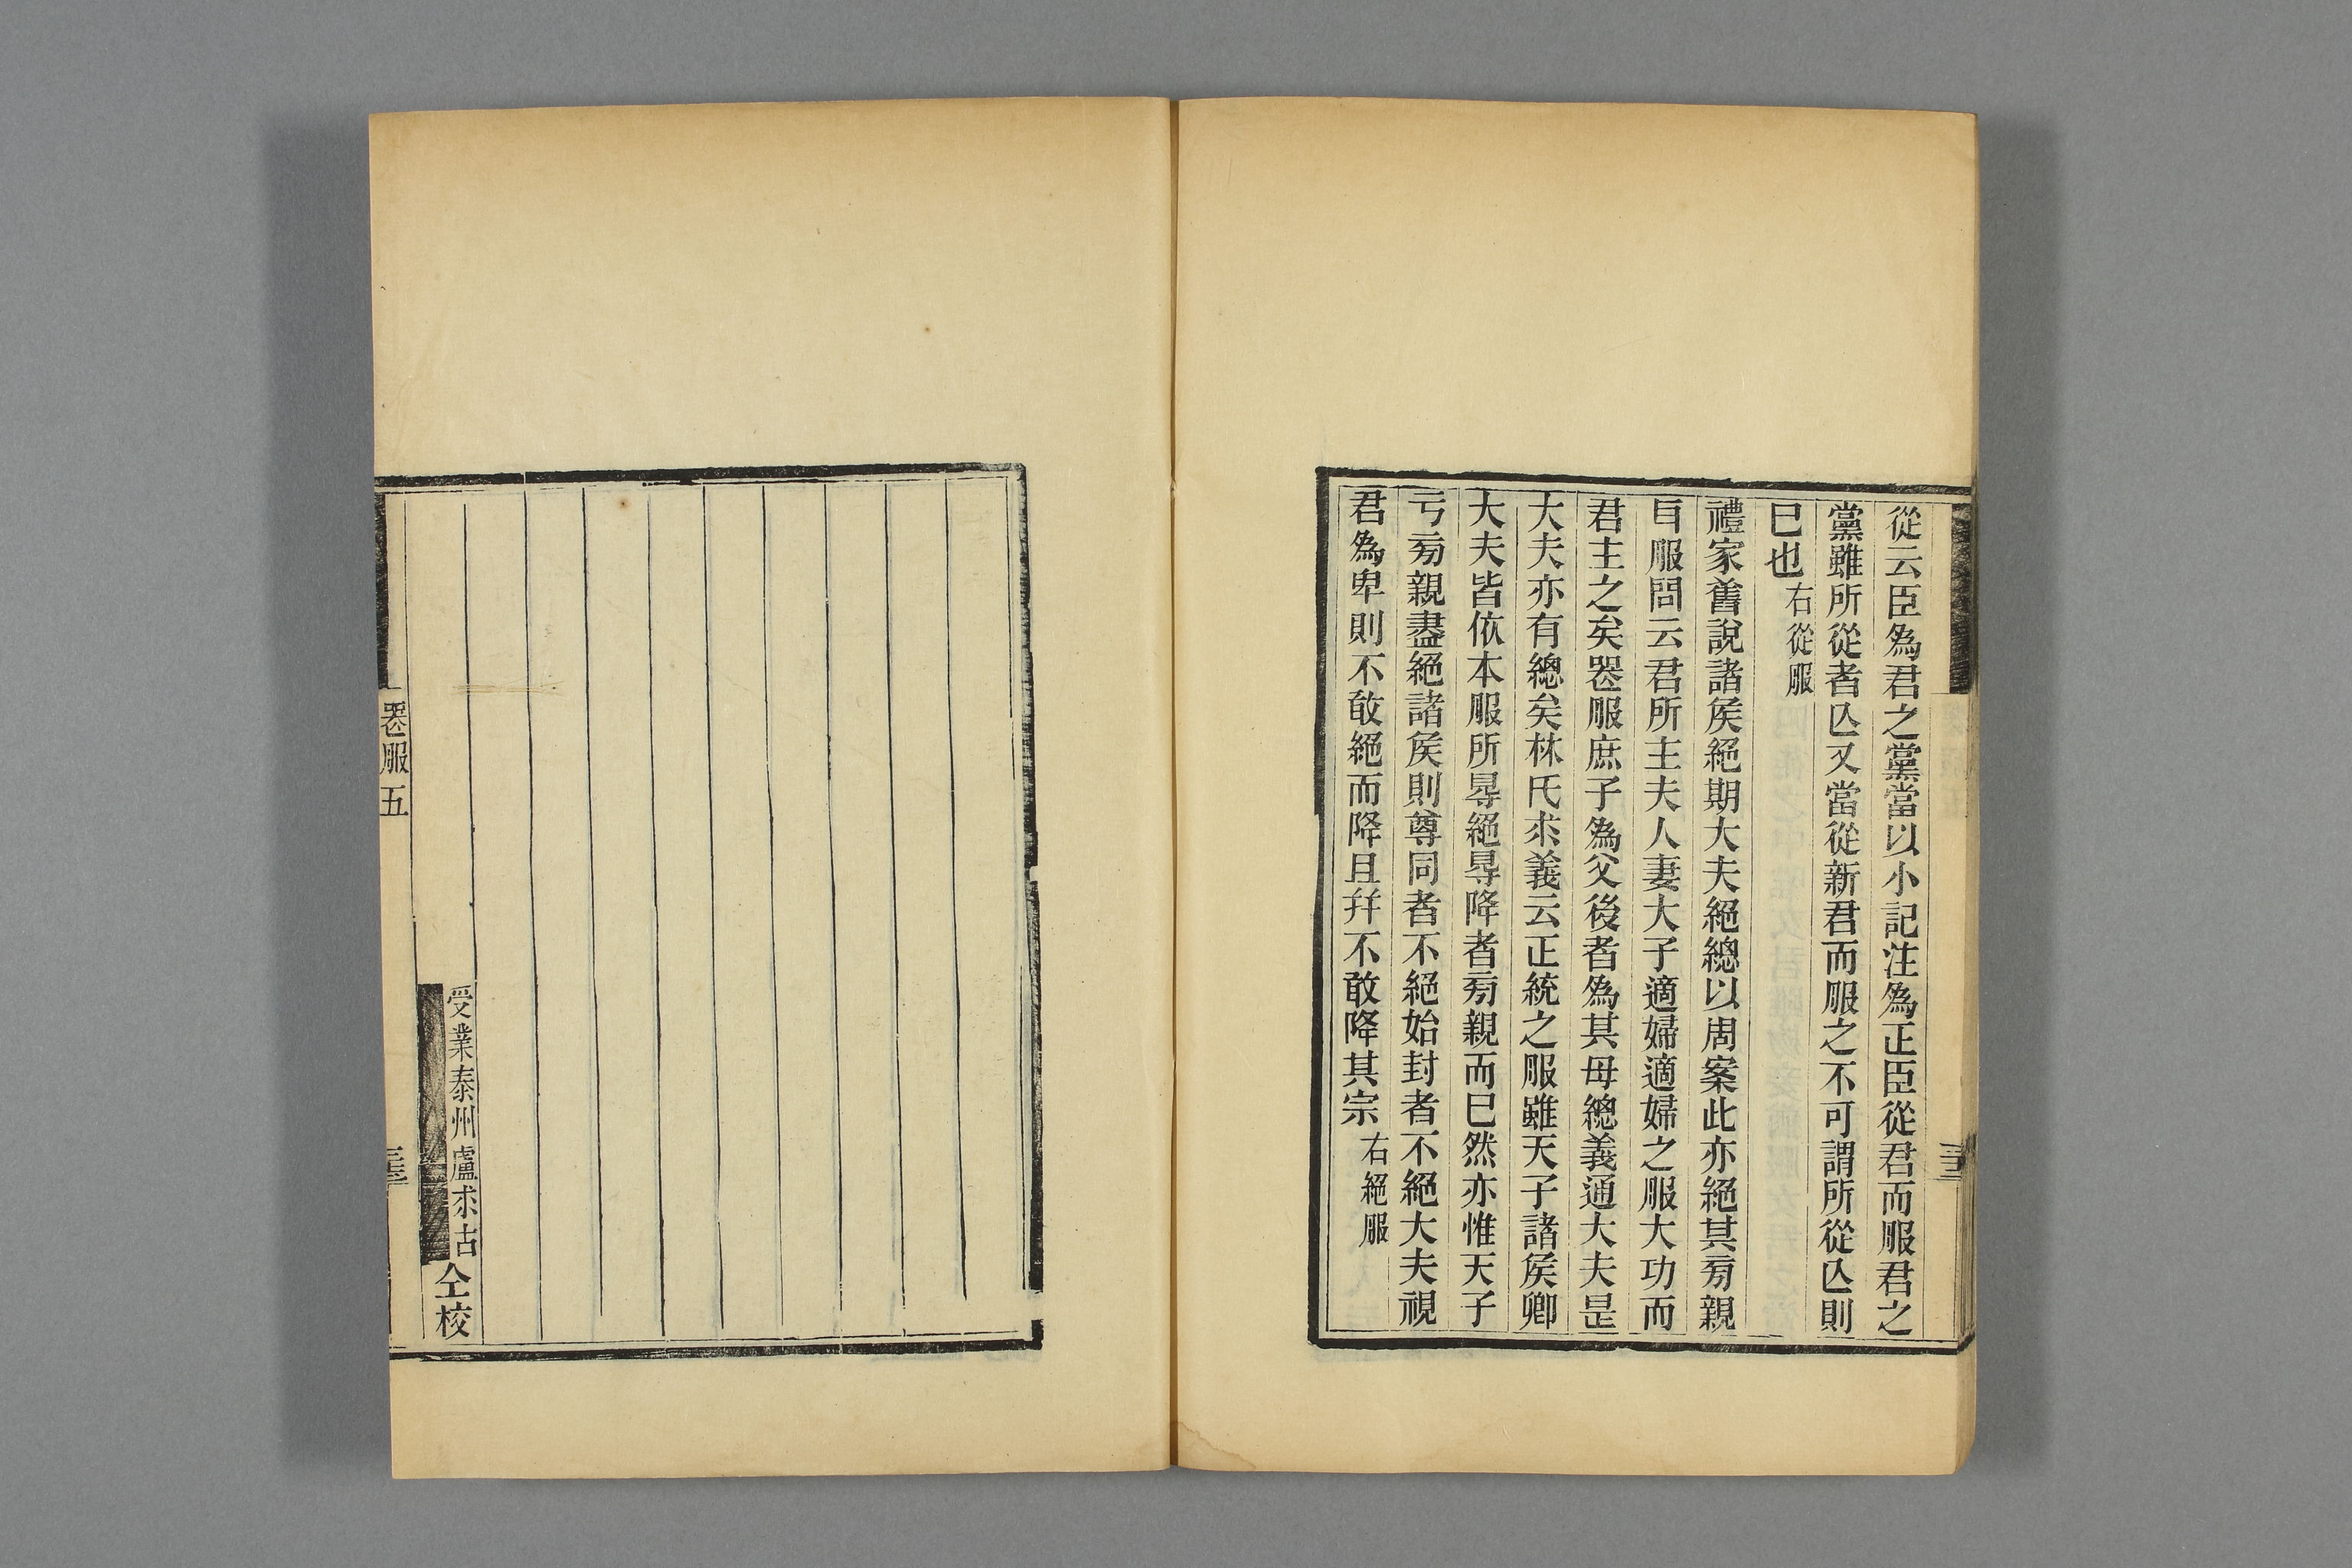 從云臣爲君之黨當以小記注爲正臣從君而服君之
黨雖所從者亾又當從新君而服之不可謂所從亾則
巳也右從服
禮家舊說諸矦絕期大夫絕緦以周案此亦絕其㫄親
㠯服問云君所主夫人妻大子適婦適婦之服大功而
君主之矣喪服庶子爲父後者爲其母緦義通大夫是
大夫亦有緦矣林氏求義云正統之服雖天子諸矦卿
大夫皆依本服所㝵絕㝵降者㫄親而巳然亦惟天子
亏㫄親盡絕諸矦則尊同者不絕始封者不絕大夫視
君爲卑則不敢絕而降且幷不敢降其宗右絕服
喪服五
受業泰州盧求古
仝校